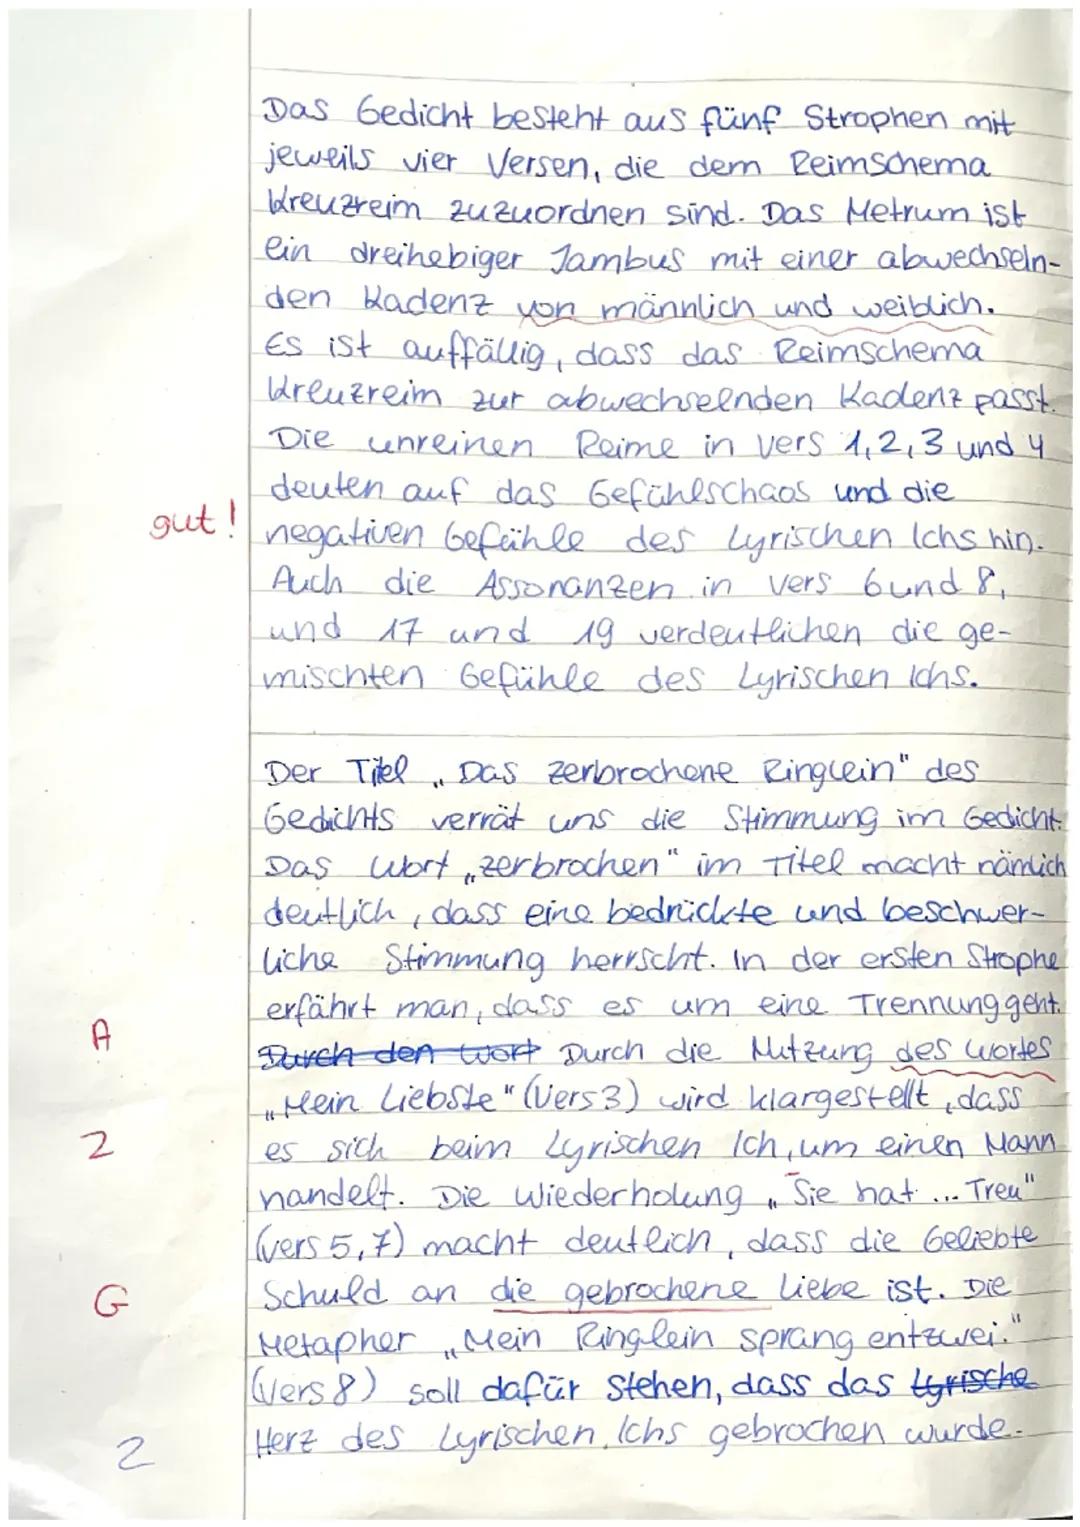 Das Gedicht besteht aus fünf Strophen mit
jeweils vier Versen, die dem Reimschema
Kreuzreim zuzuordnen sind. Das Metrum ist
ein dreihebiger Jambus mit einer abwechseln-
den Kadenz von männlich und weiblich.
Es ist auffällig, dass das Reimschema
Kreuzreim zur abwechselnden Kadenz passt.
Die unreinen Reime in Vers 1,2,3 und 4
deuten auf das Gefühlschaos und die
gut! negativen Gefühle des Lyrischen Ichs hin.
Auch die Assonanzen in Vers 6 und 8,
und 17 und 19 verdeutlichen die ge-
mischten Gefühle des Lyrischen Ichs.
Der Titel „Das zerbrochene Ringlein" des
Gedichts verrät uns die Stimmung im Gedicht.
Das Wort „zerbrochen" im Titel macht nämlich
deutlich, dass eine bedrückte und beschwer-
liche Stimmung herrscht. In der ersten Strophe
erfährt man, dass es um eine Trennung geht.
A Durch den Wort Durch die Nutzung des Wortes
„Mein Liebste" (Vers 3) wird klargestellt, dass
2 es sich beim Lyrischen Ich, um einen Mann
handelt. Die Wiederholung „Sie hat ... Treu"
(Vers 5,7) macht deutlich, dass die Geliebte
G Schuld an die gebrochene Liebe ist. Die
Metapher „Mein Ringlein sprang entzwei."
(Vers 8) soll dafür stehen, dass das Lyrische
2 Herz des Lyrischen Ichs gebrochen wurde.